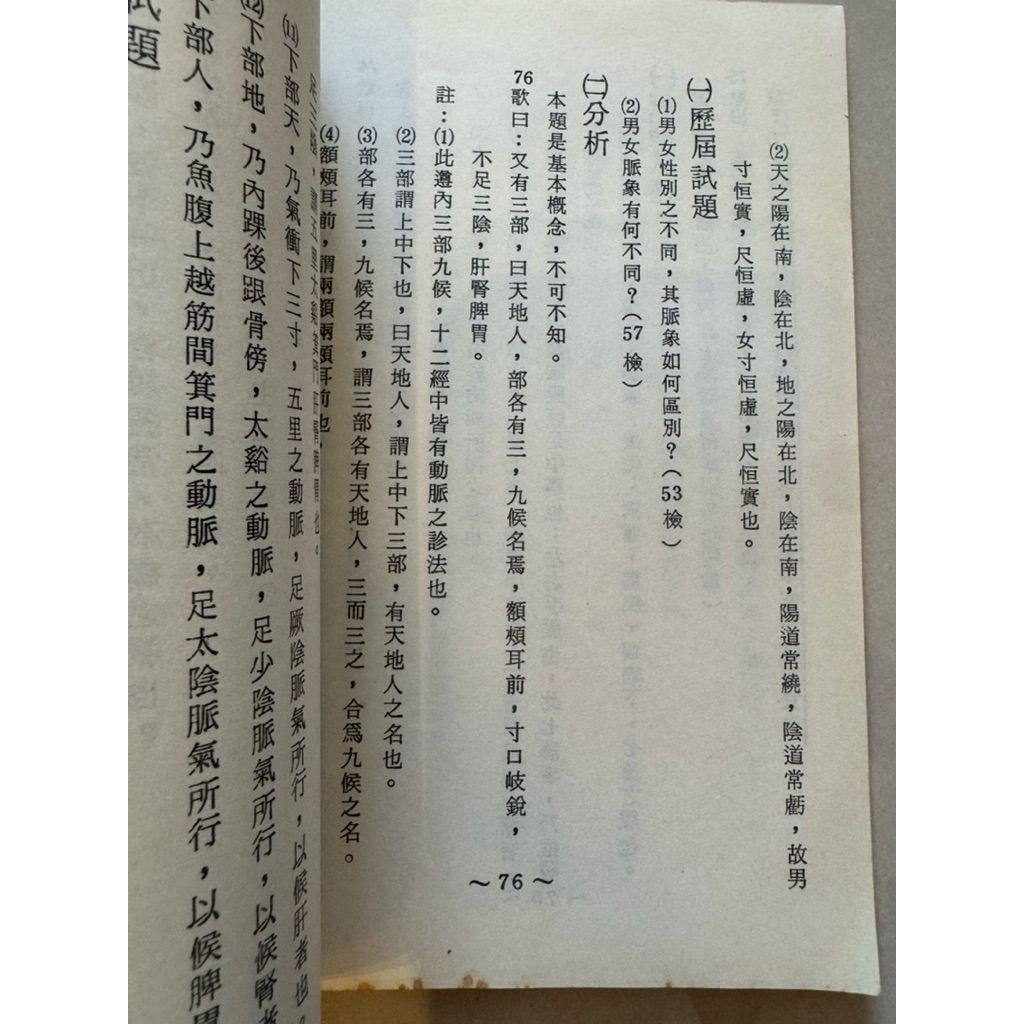 (2)天之陽在南，陰在北，地之陽在北，陰在南，陽道常繞，陰道常虧，故男
寸恒實，尺恒虛，女寸恒虛，尺恒實也。
㈠歷屆試題
(1)男女性別之不同，其脈象如何區別？（53檢）
(2)男女脈象有何不同？（57檢）
㈡分析
本題是基本概念，不可不知。
76歌曰：又有三部，曰天地人，部各有三，九候名焉，額頰耳前，寸口岐銳，
不足三陰，肝腎脾胃。
註：(1)此遵內三部九候，十二經中皆有動脈之診法也。
(2)三部謂上中下也，曰天地人，謂上中下三部，有天地人之名也。
(3)部各有三，九候名焉，謂三部各有天地人，三而三之，合爲九候之名。
(4)額頰耳前，謂兩額兩頰耳前也
～76～
(11)下部天，乃氣衝下三寸，五里之動脈，足厥陰脈氣所行，以候肝者也。
(12)下部地，乃內踝後跟骨傍，太谿之動脈，足少陰脈氣所行，以候腎者
下部人，乃魚腹上越筋間箕門之動脈，足太陰脈氣所行，以候脾胃
試題